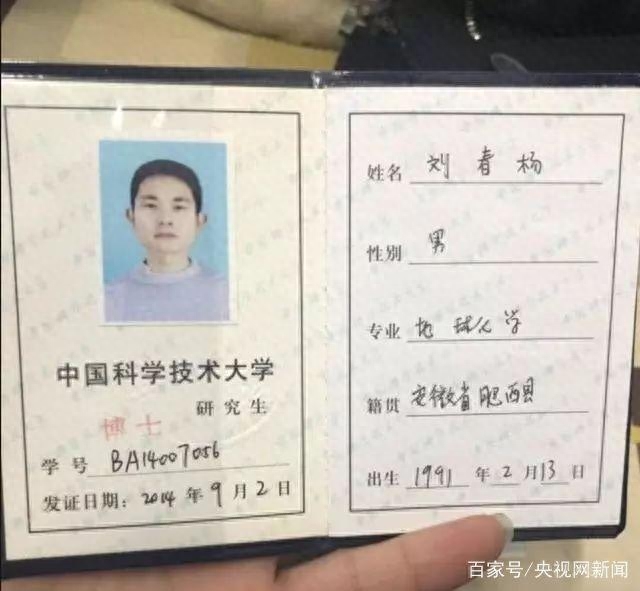 中国科学技术大学
研究生
博士
学号 BA14007056
发证日期：2014年9月2日
姓名 刘春杨
性别 男
专业 地球化学
籍贯 安徽省肥西县
出生 1991年2月13日
百家号/央视网新闻